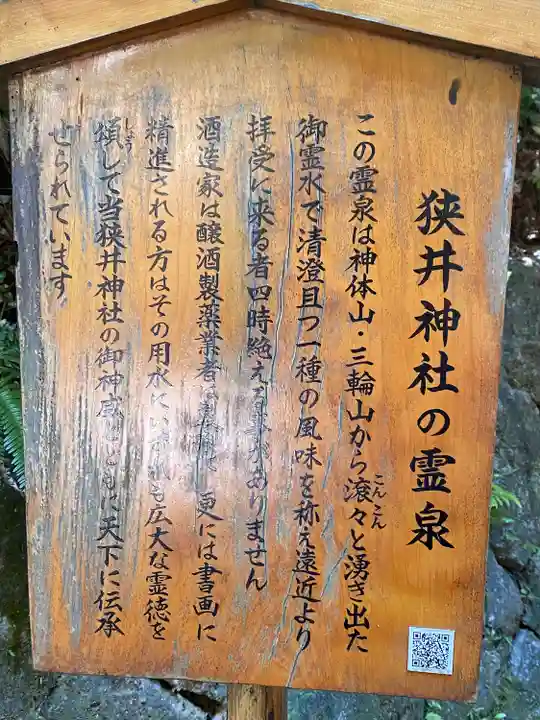 狭井神社の霊泉
この霊泉は神体山・三輪山から滾々と湧き出た
こんこん
御霊水で清澄且つ一種の風味を称え遠近より
拝受に来る者四時絶える事がありません
酒造家は醸酒製薬業者は 更には書画に
精進される方はその用水にいずれも広大な霊徳を
頌して当狭井神社の御神威とともに天下に伝承
しょう
せられています